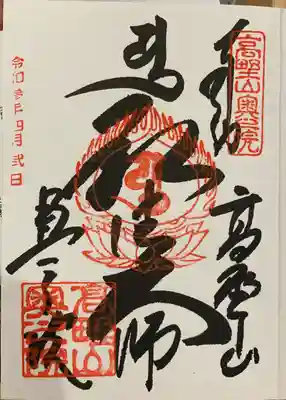 高野山奥之院
奉拝
高野山
弘法大師
奥之院
令和参年四月弐日
高野山
奥之院